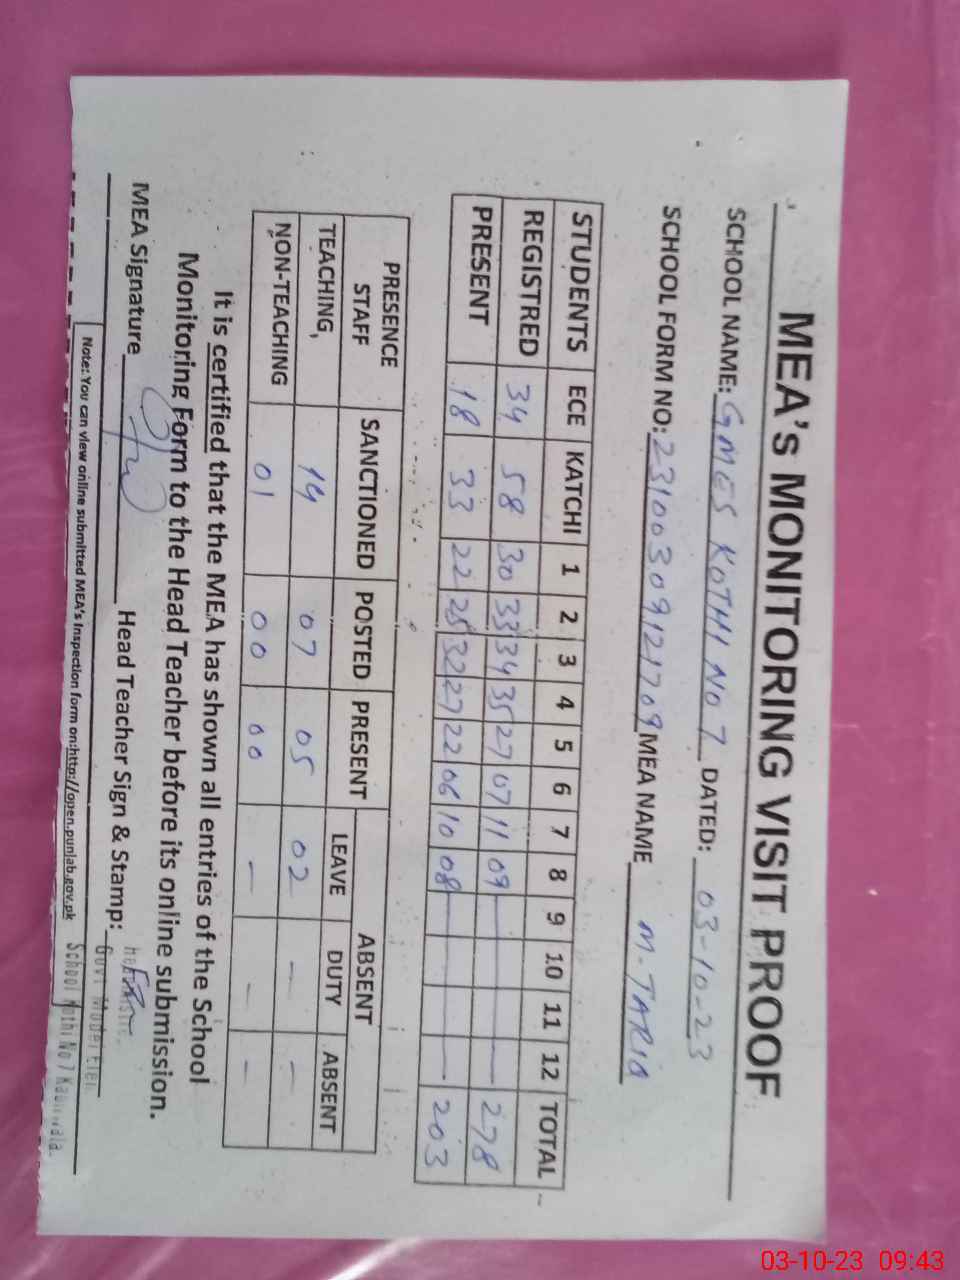 MEA's MONITORING VISIT PROOF
SCHOOL NAME: GMES KOTHI NO 7 DATED: 03-10-23
SCHOOL FORM NO: 23100309121709 MEA NAME M. TARIQ
STUDENTS ECE KATCHI 1 2 3 4 5 6 7 8 9 10 11 12 TOTAL
REGISTRED 34 58 30 33 34 35 27 07 11 09 — 278
PRESENT 18 33 22 25 32 27 22 06 10 08 — 203
PRESENCE STAFF SANCTIONED POSTED PRESENT ABSENT
LEAVE DUTY ABSENT
TEACHING, 14 07 05 02 — —
NON-TEACHING 01 00 00 — — —
It is certified that the MEA has shown all entries of the School
Monitoring Form to the Head Teacher before its online submission.
MEA Signature Head Teacher Sign & Stamp:
Govt Model Elem.
School Kothi No 7
Note: You can view online submitted MEA's Inspection form on:http://open.punjab.gov.pk
03-10-23 09:43